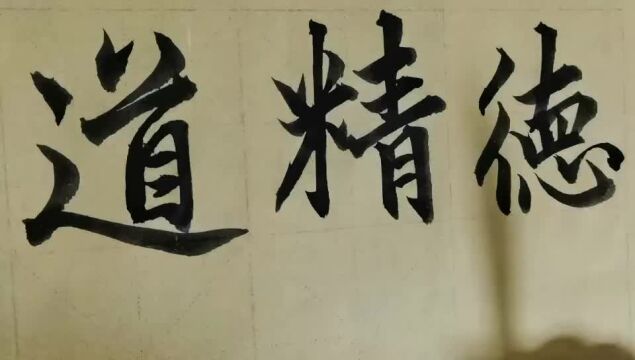 道精德